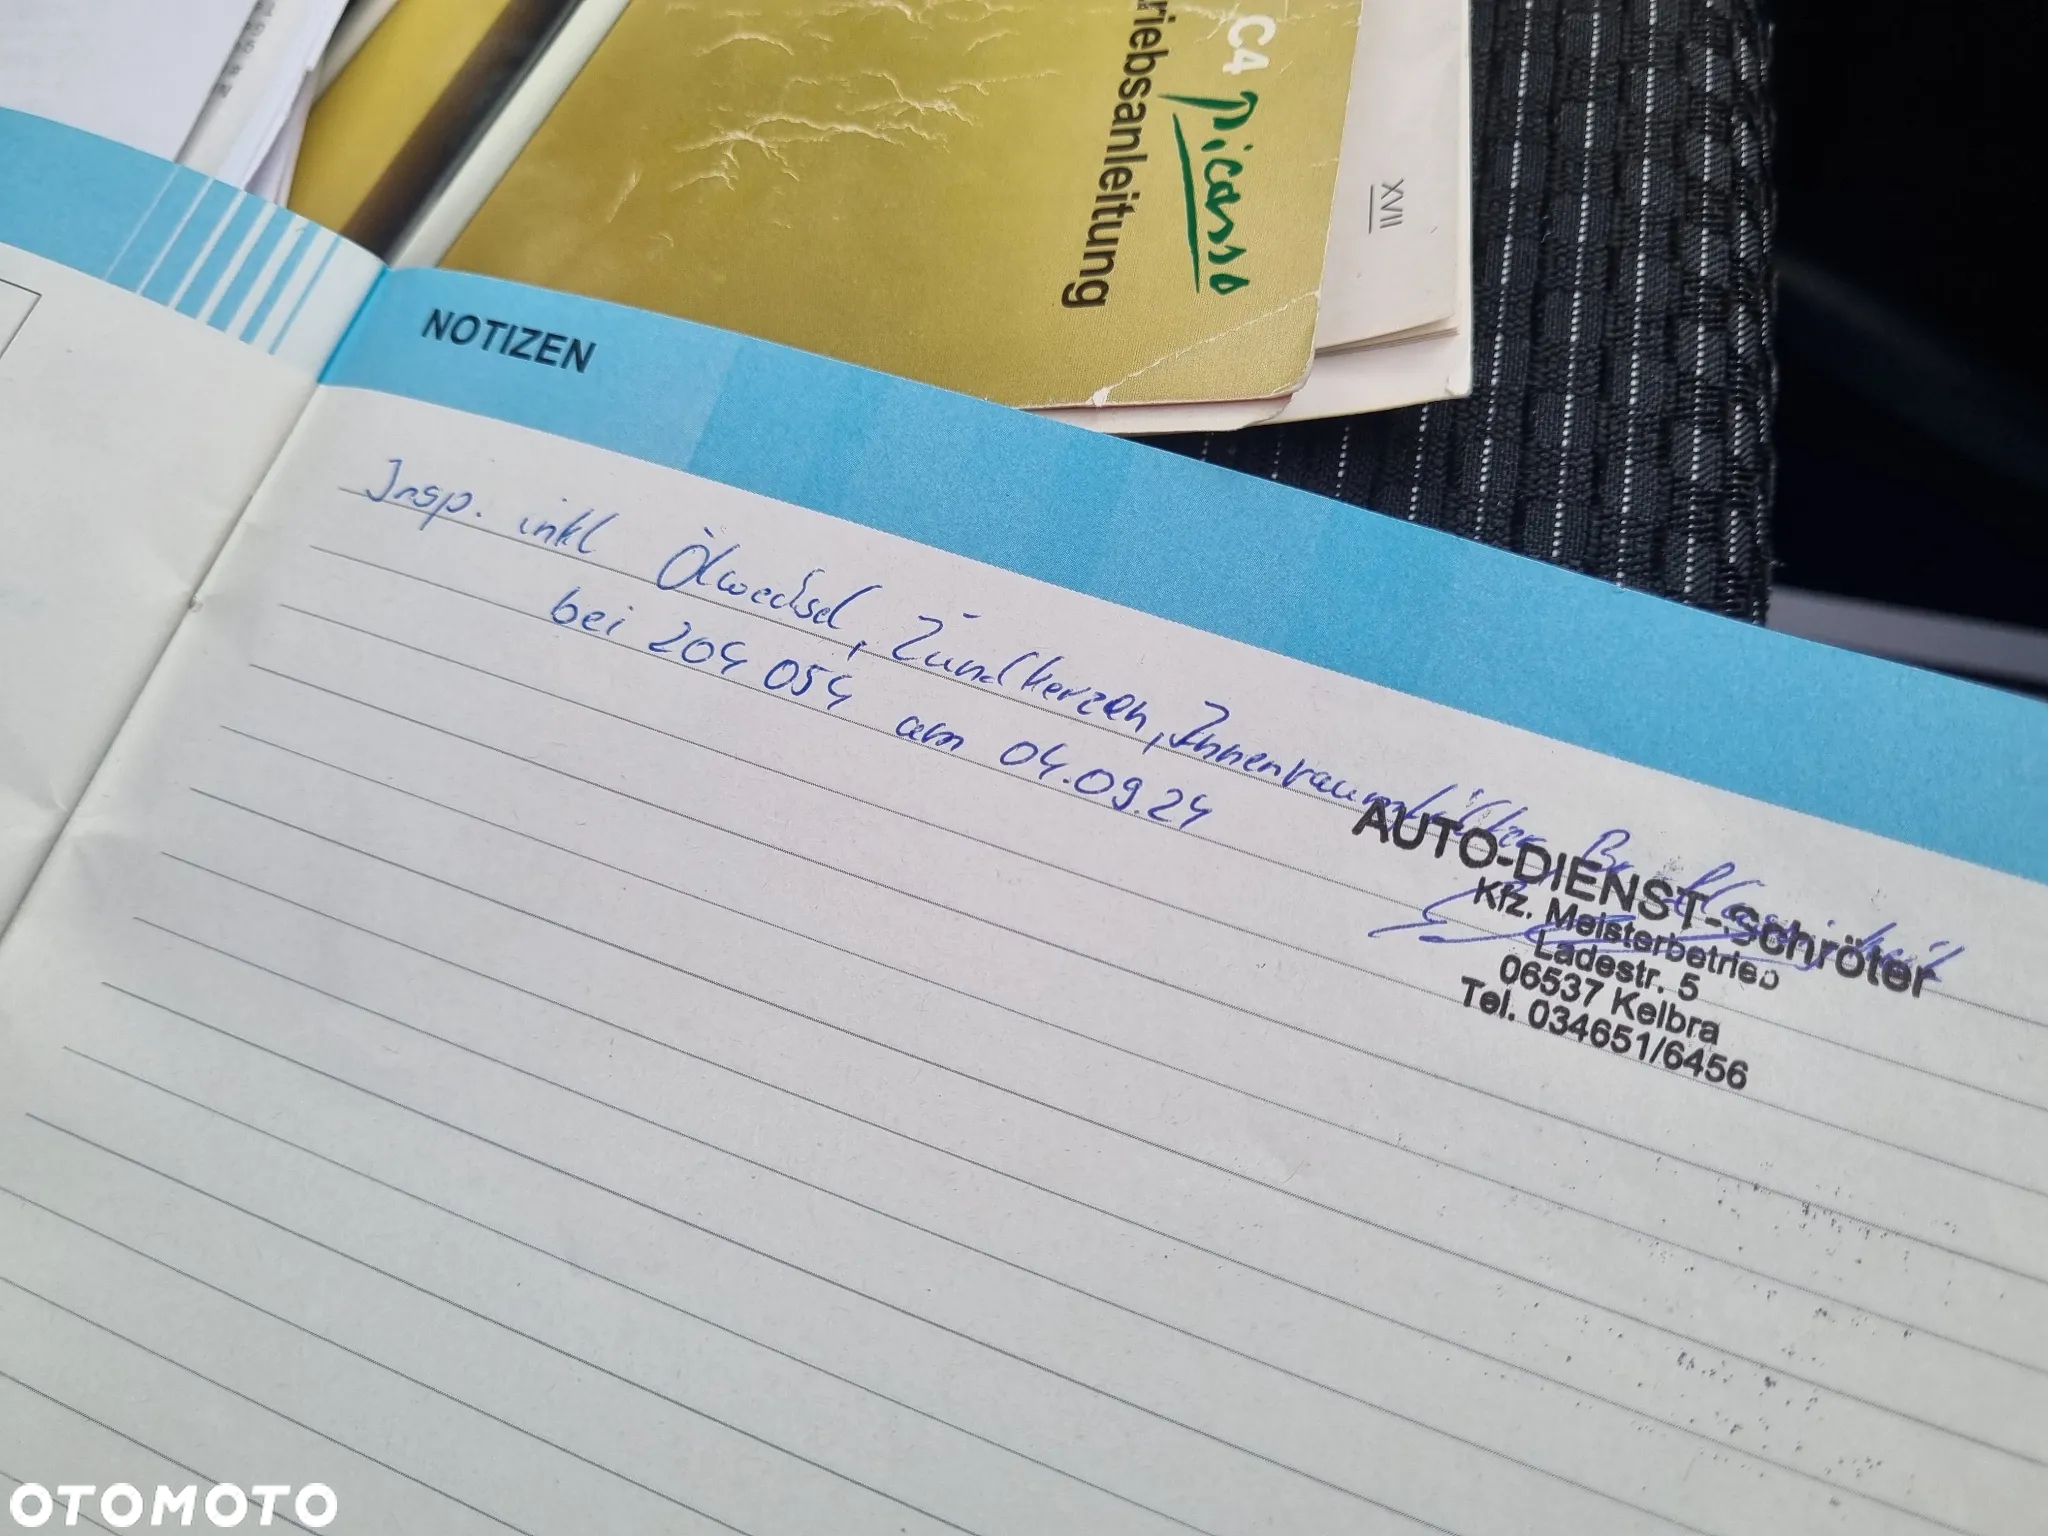 C4 Picasso
riebsanleitung
XVII
NOTIZEN
Insp. inkl Ölwechsel, Zündkerzen, Innenraumfilter, Bremsflüssigkeit
bei 204 054 am 04.09.24
AUTO-DIENST-Schröter
Kfz. Meisterbetrieb
Ladestr. 5
06537 Kelbra
Tel. 034651/6456
OTOMOTO